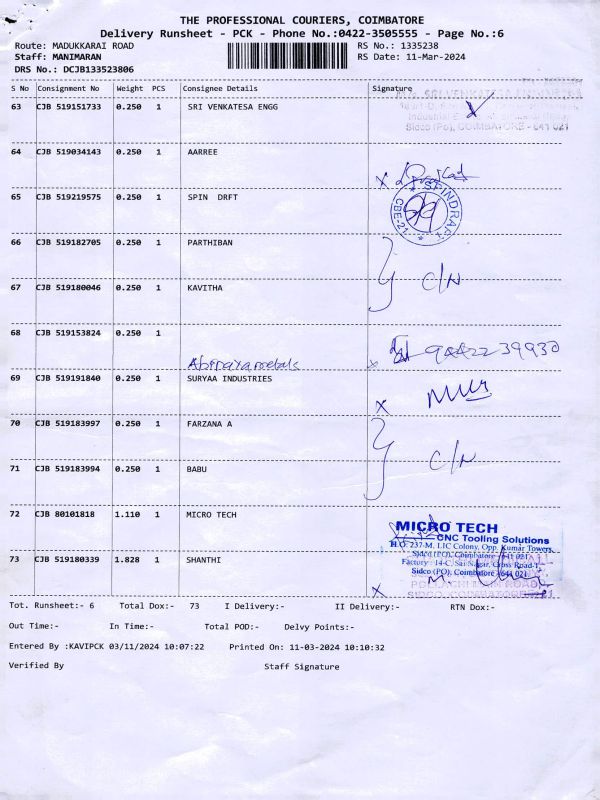 THE PROFESSIONAL COURIERS, COIMBATORE
Delivery Runsheet - PCK - Phone No.:0422-3505555 - Page No.:6
Route: MADUKKARAI ROAD RS No.: 1335238
Staff: MANIMARAN RS Date: 11-Mar-2024
DRS No.: DCJB133523806
S No Consignment No Weight PCS Consignee Details Signature
63 CJB 519151733 0.250 1 SRI VENKATESA ENGG
Sidco (Po), COIMBATORE - 641 021
64 CJB 519034143 0.250 1 AARREE
65 CJB 519219575 0.250 1 SPIN DRFT
SPINDRAFT
CBE-21
66 CJB 519182705 0.250 1 PARTHIBAN
C/N
67 CJB 519180046 0.250 1 KAVITHA
68 CJB 519153824 0.250 1
Abinaya metals
69 CJB 519191840 0.250 1 SURYAA INDUSTRIES
70 CJB 519183997 0.250 1 FARZANA A
C/N
71 CJB 519183994 0.250 1 BABU
72 CJB 80101818 1.110 1 MICRO TECH
MICRO TECH
CNC Tooling Solutions
H.O: 237-M, LIC Colony, Opp. Kumar Towers,
Sidco (PO), Coimbatore - 641 021
Factory : 14-C, Sai Nagar, Cross Road-1
Sidco (PO), Coimbatore - 641 021
73 CJB 519180339 1.828 1 SHANTHI
Tot. Runsheet:- 6 Total Dox:- 73 I Delivery:- II Delivery:- RTN Dox:-
Out Time:- In Time:- Total POD:- Delvy Points:-
Entered By :KAVIPCK 03/11/2024 10:07:22 Printed On: 11-03-2024 10:10:32
Verified By Staff Signature